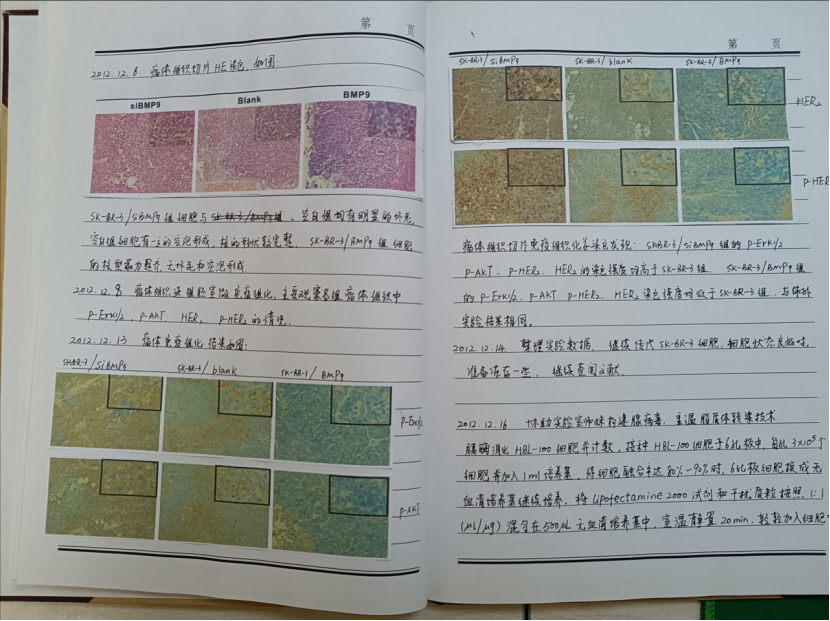 第 页
2012.12.6 瘤体组织切片HE染色,如图:
siBMP9 Blank BMP9
SK-BR-3/SiBMP9组细胞与SK-BR-3/BMP9组、空白组均有明显的坏死
空白组细胞有一定的空泡形成,核的形状较完整. SK-BR-3/BMP9组细胞
的核型最为异齐,无坏死和空泡形成.
2012.12.8 瘤体组织 免疫组化,主要观察各组瘤体组织中
p-Erk1/2、p-AKT、HER2、p-HER2的情况.
2012.12.13 瘤体免疫组化结果如图:
SKBR-3/SiBMP9 SK-BR-3/blank SK-BR-3/BMP9
p-Erk1/2
p-AKT
第 页
SK-BR-3/SiBMP9 SK-BR-3/blank SK-BR-3/BMP9
HER2
p-HER
瘤体组织切片免疫组织化学染色发现: SKBR-3/SiBMP9组的p-Erk1/2
p-AKT、p-HER2、HER2的染色强度均高于SK-BR-3组. SK-BR-3/BMP9组
的p-Erk1/2、p-AKT、p-HER2、HER2染色强度均低于SK-BR-3组、与体外
实验结果相同。
2012.12.14 整理实验数据. 继续传代SK-BR-3细胞,细胞状态良好时,
准备冻存一些. 继续查阅文献.
2012.12.16 协助实验室师妹构建腺病毒. 室温脂质体转染技术
胰酶消化HBL-100细胞并计数,接种HBL-100细胞于6孔板中,每孔3×10⁵个
细胞并加入1ml培养基. 待细胞融合率达80%~90%时,6孔板细胞换成无
血清培养基继续培养. 将Lipofectamine 2000试剂和干扰质粒按照1:1
(μL/μg)混匀在500μL无血清培养基中,室温静置20min,轻轻加入细胞